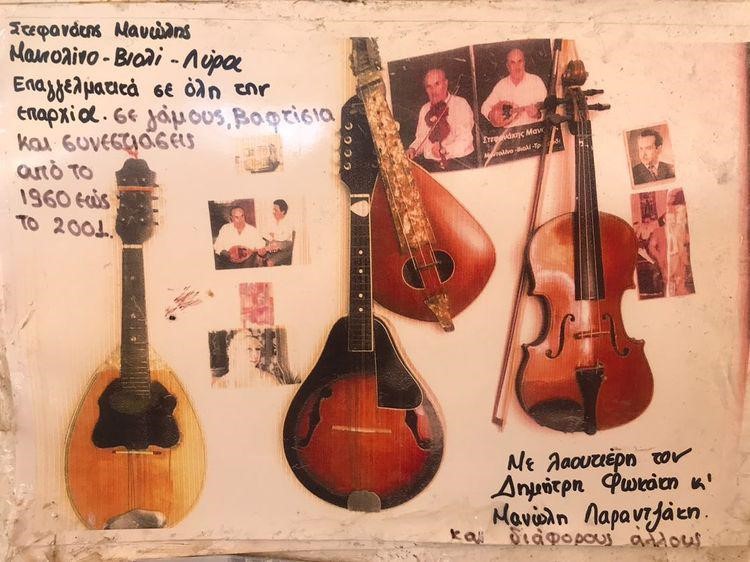 Στεφανάκης Μανώλης
Μαντολίνο - Βιολί - Λύρα
Επαγγελματικά σε όλη την
επαρχία. σε γάμους, βαφτίσια
και συνεστιάσεις
από το
1960 εώς
το 2001.
Στεφανάκης Μανώ
Μαντολίνο - Βιολί - Τρ
Με λαουτιέρη τον
Δημήτρη Φωκάκη κ'
Μανώλη Παραντζάκη.
και διάφορους άλλους